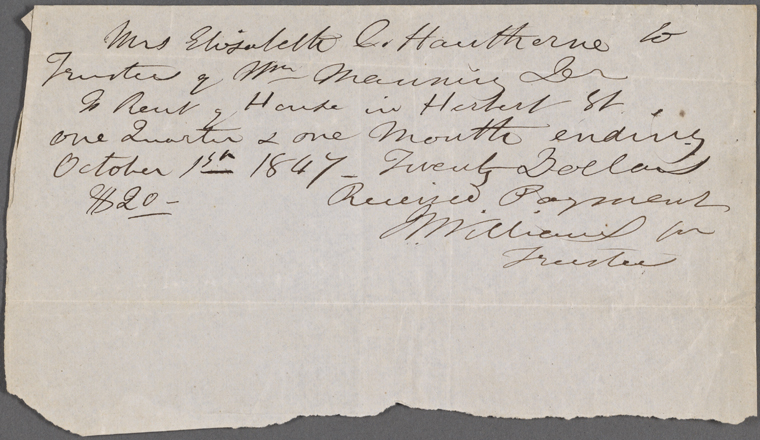 Mrs Elisabeth C. Hawthorne to
Trustee of Wm Manning Dr
To Rent of House in Herbert St
one Quarter & one Month ending
October 1st 1847 – Twenty Dollars
$20 – Received Payment
Williams for
Trustee